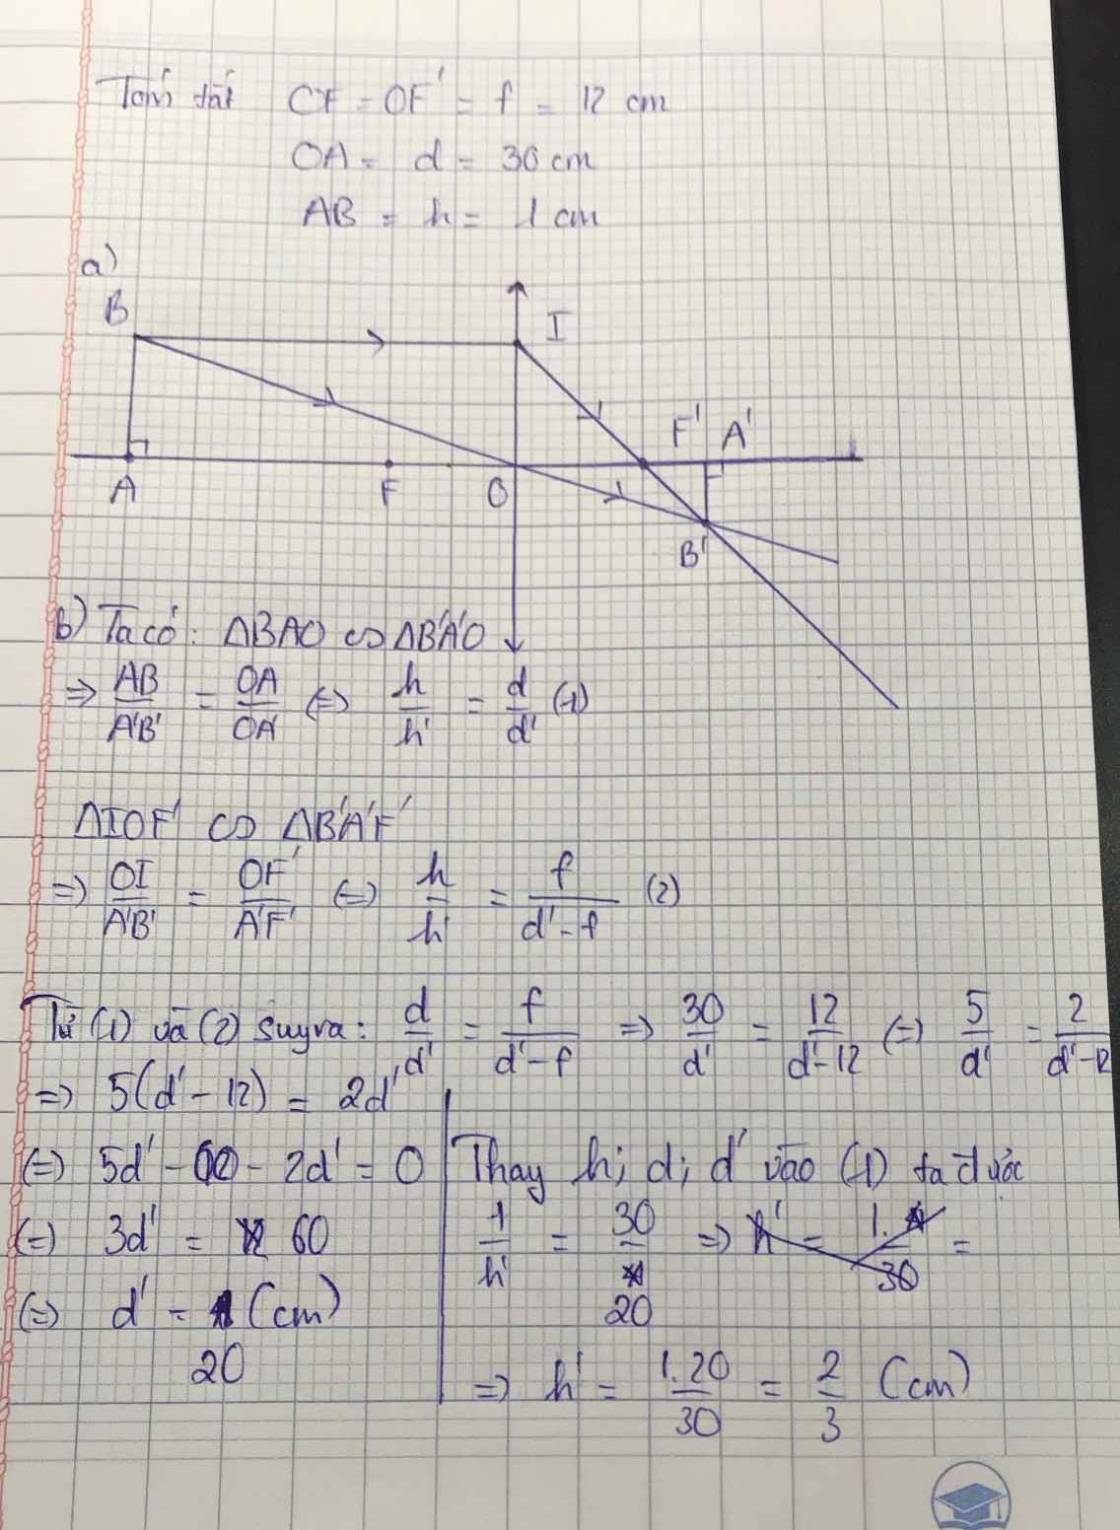 Tóm tắt OF = OF' = f = 12 cm
OA = d = 30 cm
AB = h = 1 cm
a)
B
I
F' A'
A F O
B'
b) Ta có: ΔBAO ∽ ΔB'A'O
⇒ AB/A'B' = OA/OA' ⇔ h/h' = d/d' (1)
ΔIOF' ∽ ΔB'A'F'
⇒ OI/A'B' = OF'/A'F' ⇔ h/h' = f/d'-f (2)
Từ (1) và (2) suy ra: d/d' = f/d'-f ⇒ 30/d' = 12/d'-12 ⇔ 5/d' = 2/d'-12
⇒ 5(d' - 12) = 2d'
⇔ 5d' - 60 - 2d' = 0
⇔ 3d' = 60
⇔ d' = 20 (cm)
Thay h; d; d' vào (1) ta được
1/h' = 30/20 ⇒ h' = 1./30 =
⇒ h' = 1.20/30 = 2/3 (cm)